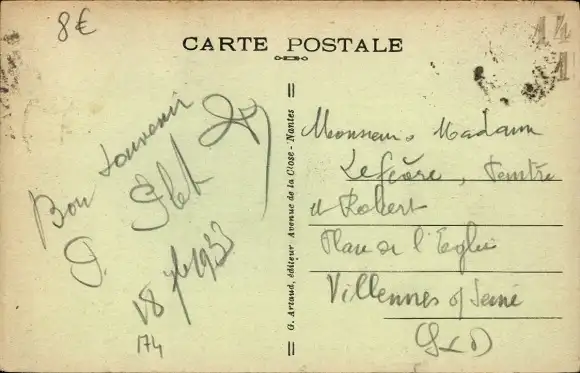 8€
CARTE POSTALE
Bon Souvenir
18 7b 1933
174
G. Artaud, éditeur Avenue de la Close - Nantes
Monsieur Madame
Lefèvre, Peintre
et Robert
Place de l'Eglise
Villennes s/ Seine
(S & O)
14
1